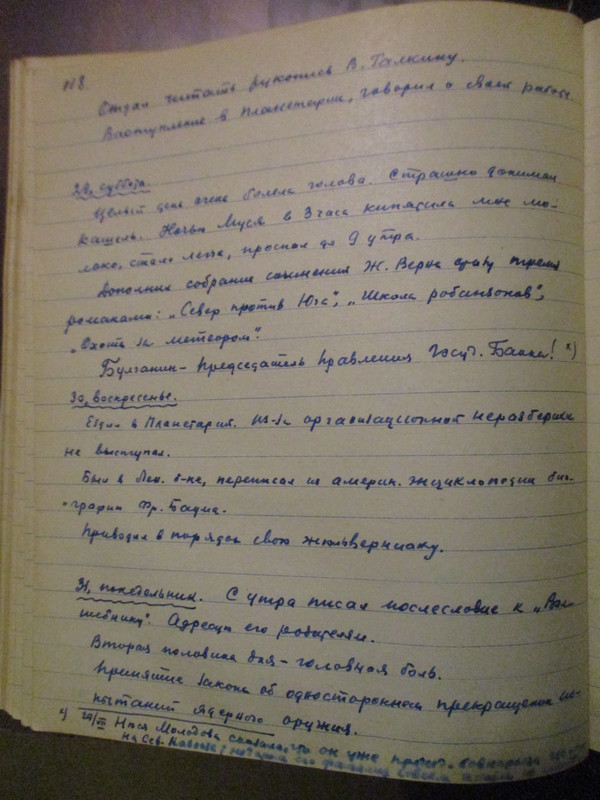 118.
Отдал читать рукопись В. Галкину.
Выступление в Планетарии, говорил о своей работе
29, суббота.
Целый день очень болела голова. Страшно донимал
кашель. Ночью Муся в 3 часа кипятила мне мо-
локо, стало легче, проспал до 9 утра.
Дополнил собрание сочинения Ж. Верна сразу тремя
романами: „Север против Юга", „Школа робинзонов",
„Охота за метеором".
Булганин - председатель Правления Госуд. Банка! х)
30, воскресенье.
Ездил в Планетарий. Из-за организационной неразберихи
не выступал.
Был в Лен. б-ке, переписал из америк. энциклопедии био-
графию Фр. Баума.
Приводил в порядок свою жюльверниану.
31, понедельник. С утра писал послесловие к „Вол-
шебнику". Адресую его родителям.
Вторая половина дня - головная боль.
Принятие закона об одностороннем прекращении ис-
пытаний ядерного оружия.
х) Нася Молодова сказала, что он уже предс. совнархоза
на Сев. Кавказе;